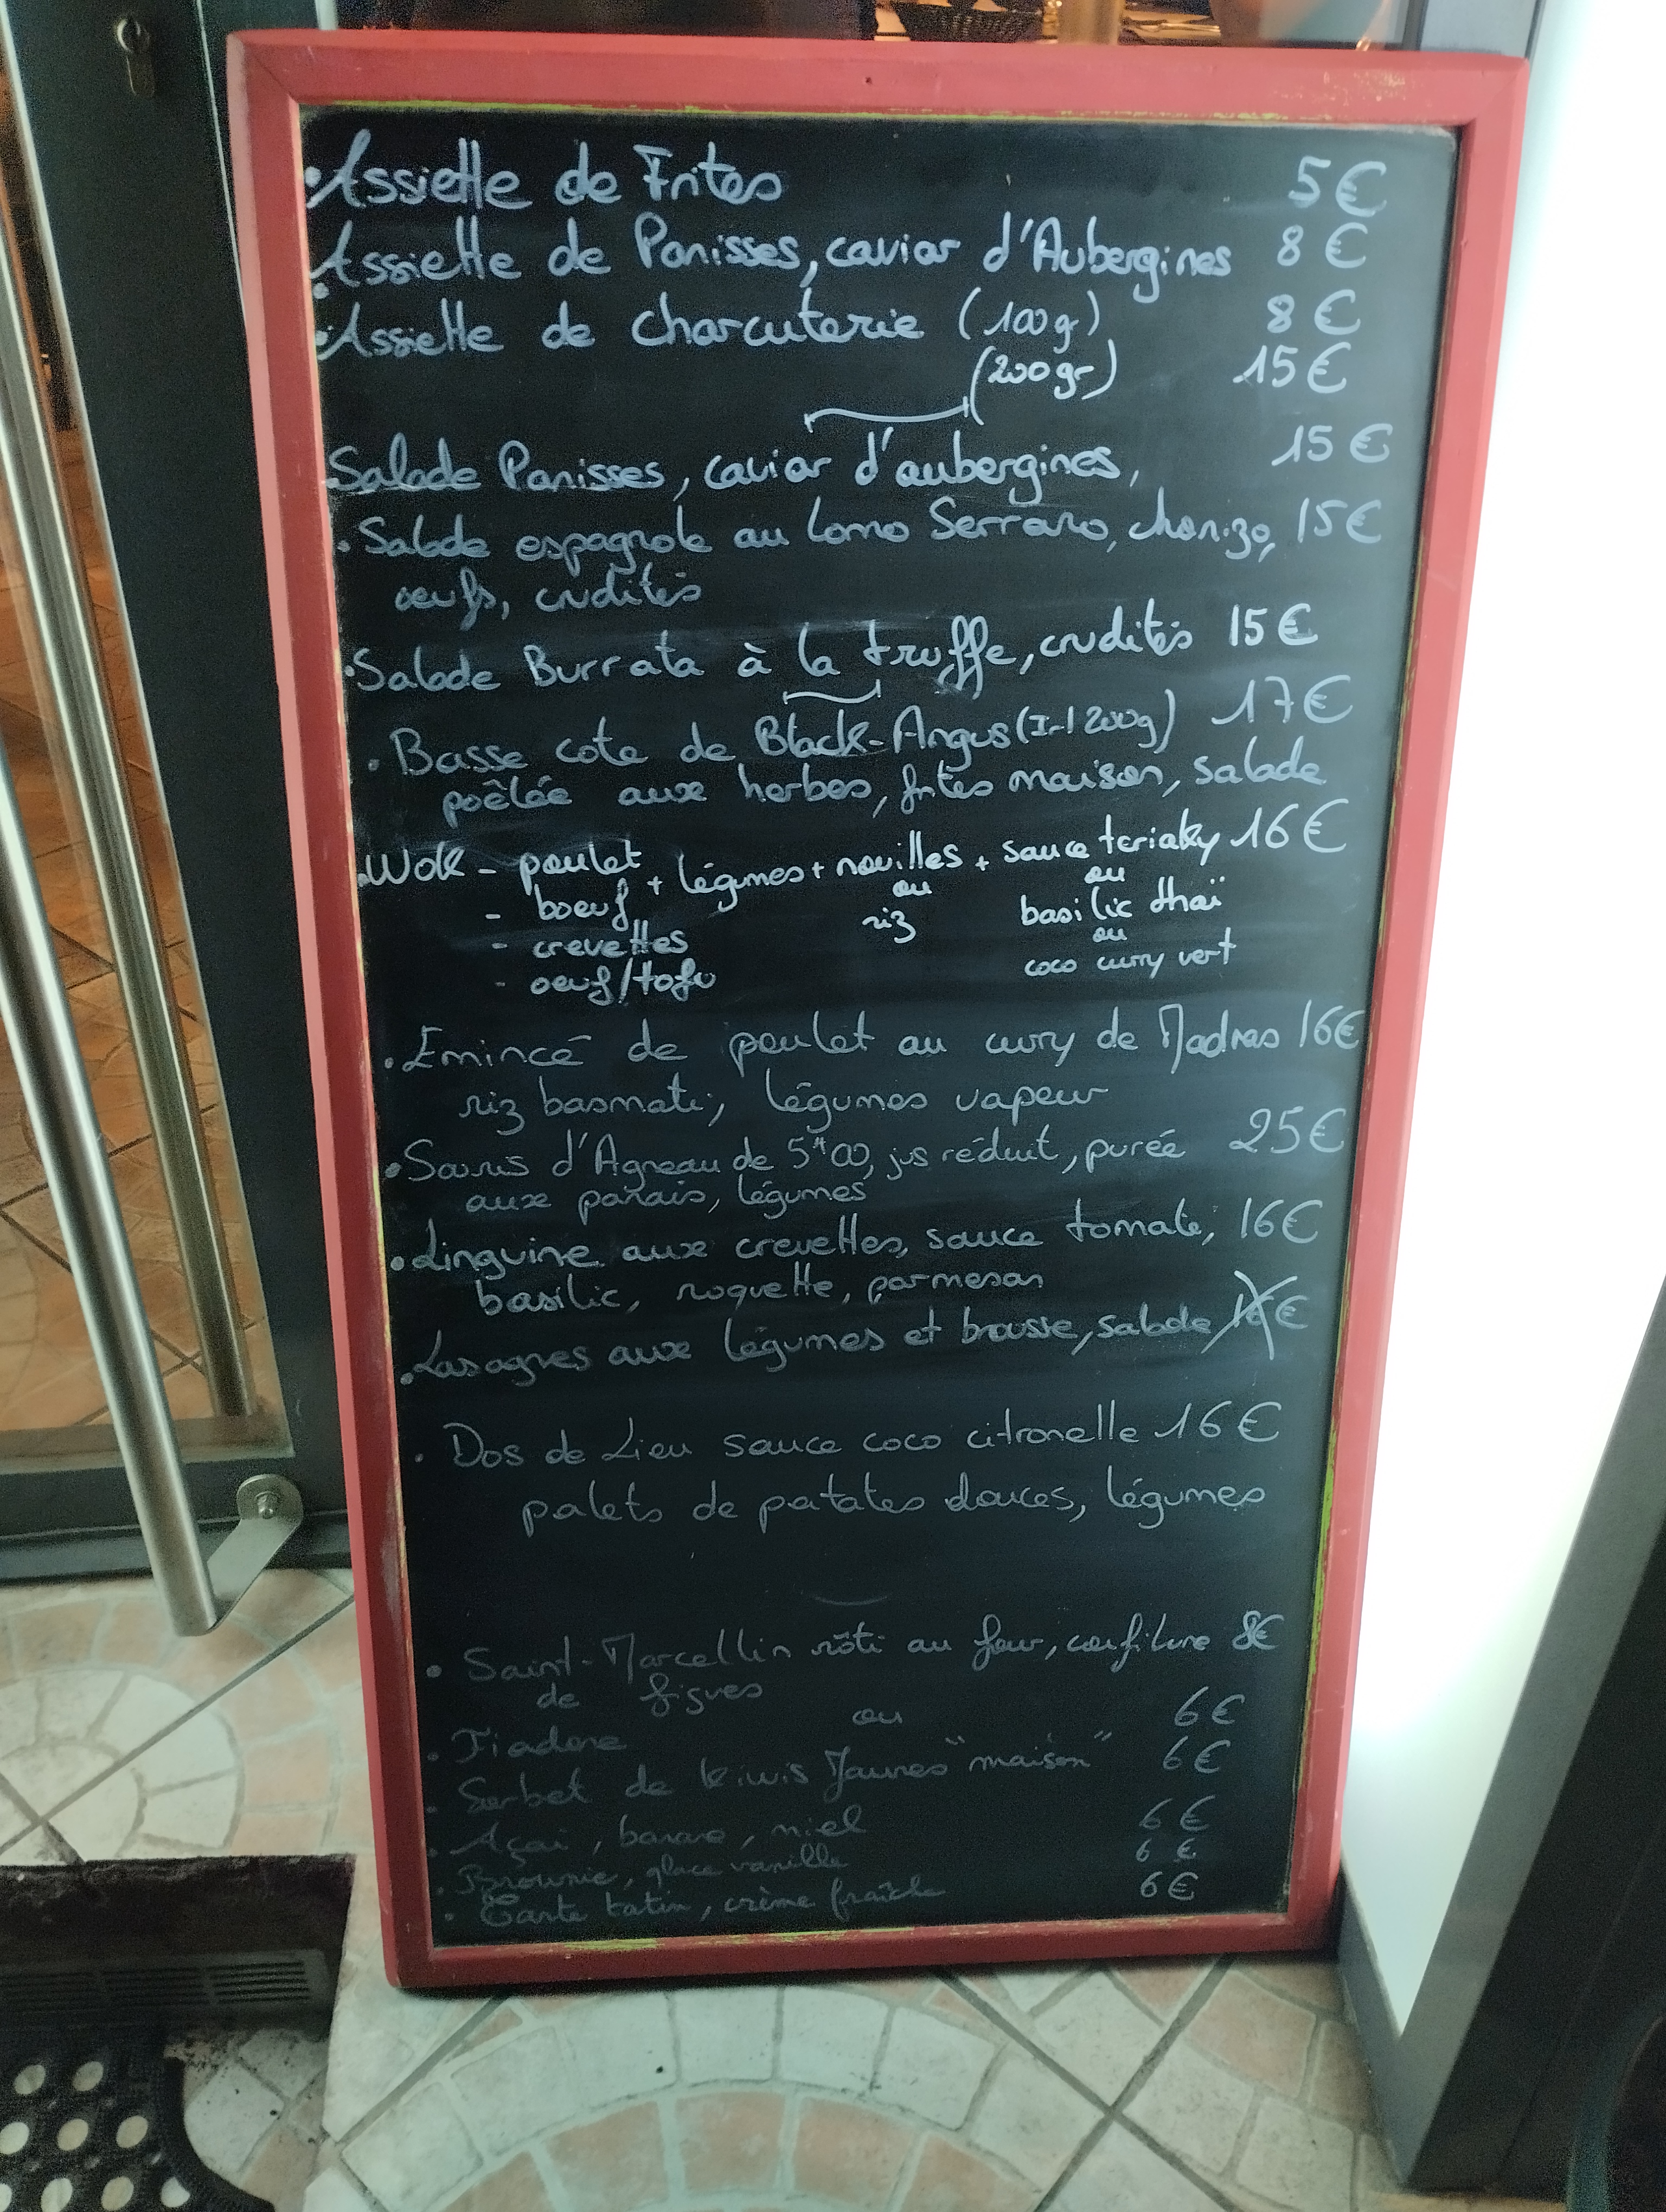 • Assiette de Frites 5€
• Assiette de Panisses, caviar d'Aubergines 8€
• Assiette de charcuterie (100g) 8€
(200gr) 15€
Salade Panisses, caviar d'aubergines, 15€
• Salade espagnole au Lomo Serrano, chorizo, 15€
œufs, crudités
• Salade Burrata à la truffe, crudités 15€
• Basse cote de Black-Angus (Irl 200g) 17€
poêlée aux herbes, frites maison, salade
• Wok - poulet + légumes + nouilles + sauce teriaky 16€
- boeuf ou ou
- crevettes riz basilic thaï
- oeuf/tofu ou
coco curry vert
• Emincé de poulet au curry de Madras 16€
riz basmati, légumes vapeur
• Souris d'Agneau de 5H00, jus réduit, purée 25€
aux panais, légumes
• Linguine aux crevettes, sauce tomate, 16€
basilic, roquette, parmesan
• Lasagnes aux légumes et brousse, salade €
• Dos de Lieu sauce coco citronelle 16€
palets de patates douces, légumes
• Saint-Marcellin rôti au four, confiture 8€
de figues
ou 6€
• Fiadone
• Sorbet de kiwis Jaunes "maison" 6€
• Açai, banane, miel 6€
• Brownie, glace vanille 6€
• Tarte tatin, crème fraîche 6€